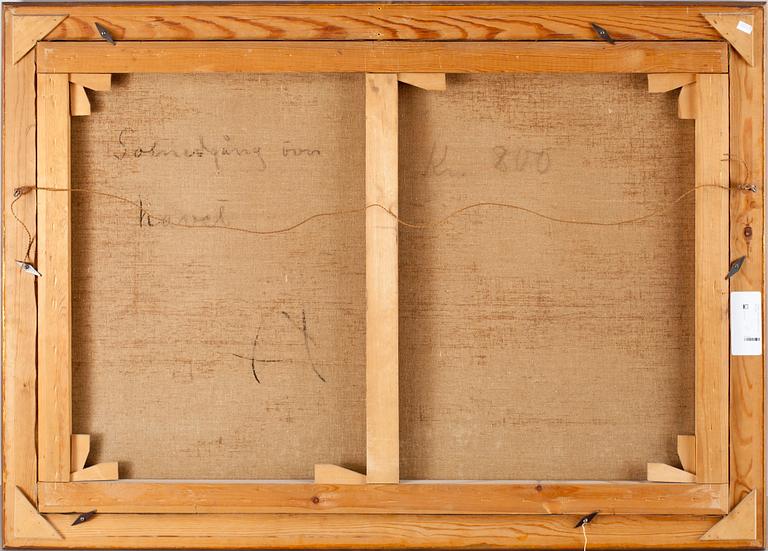 Solnedgång över
havet
Kr. 800